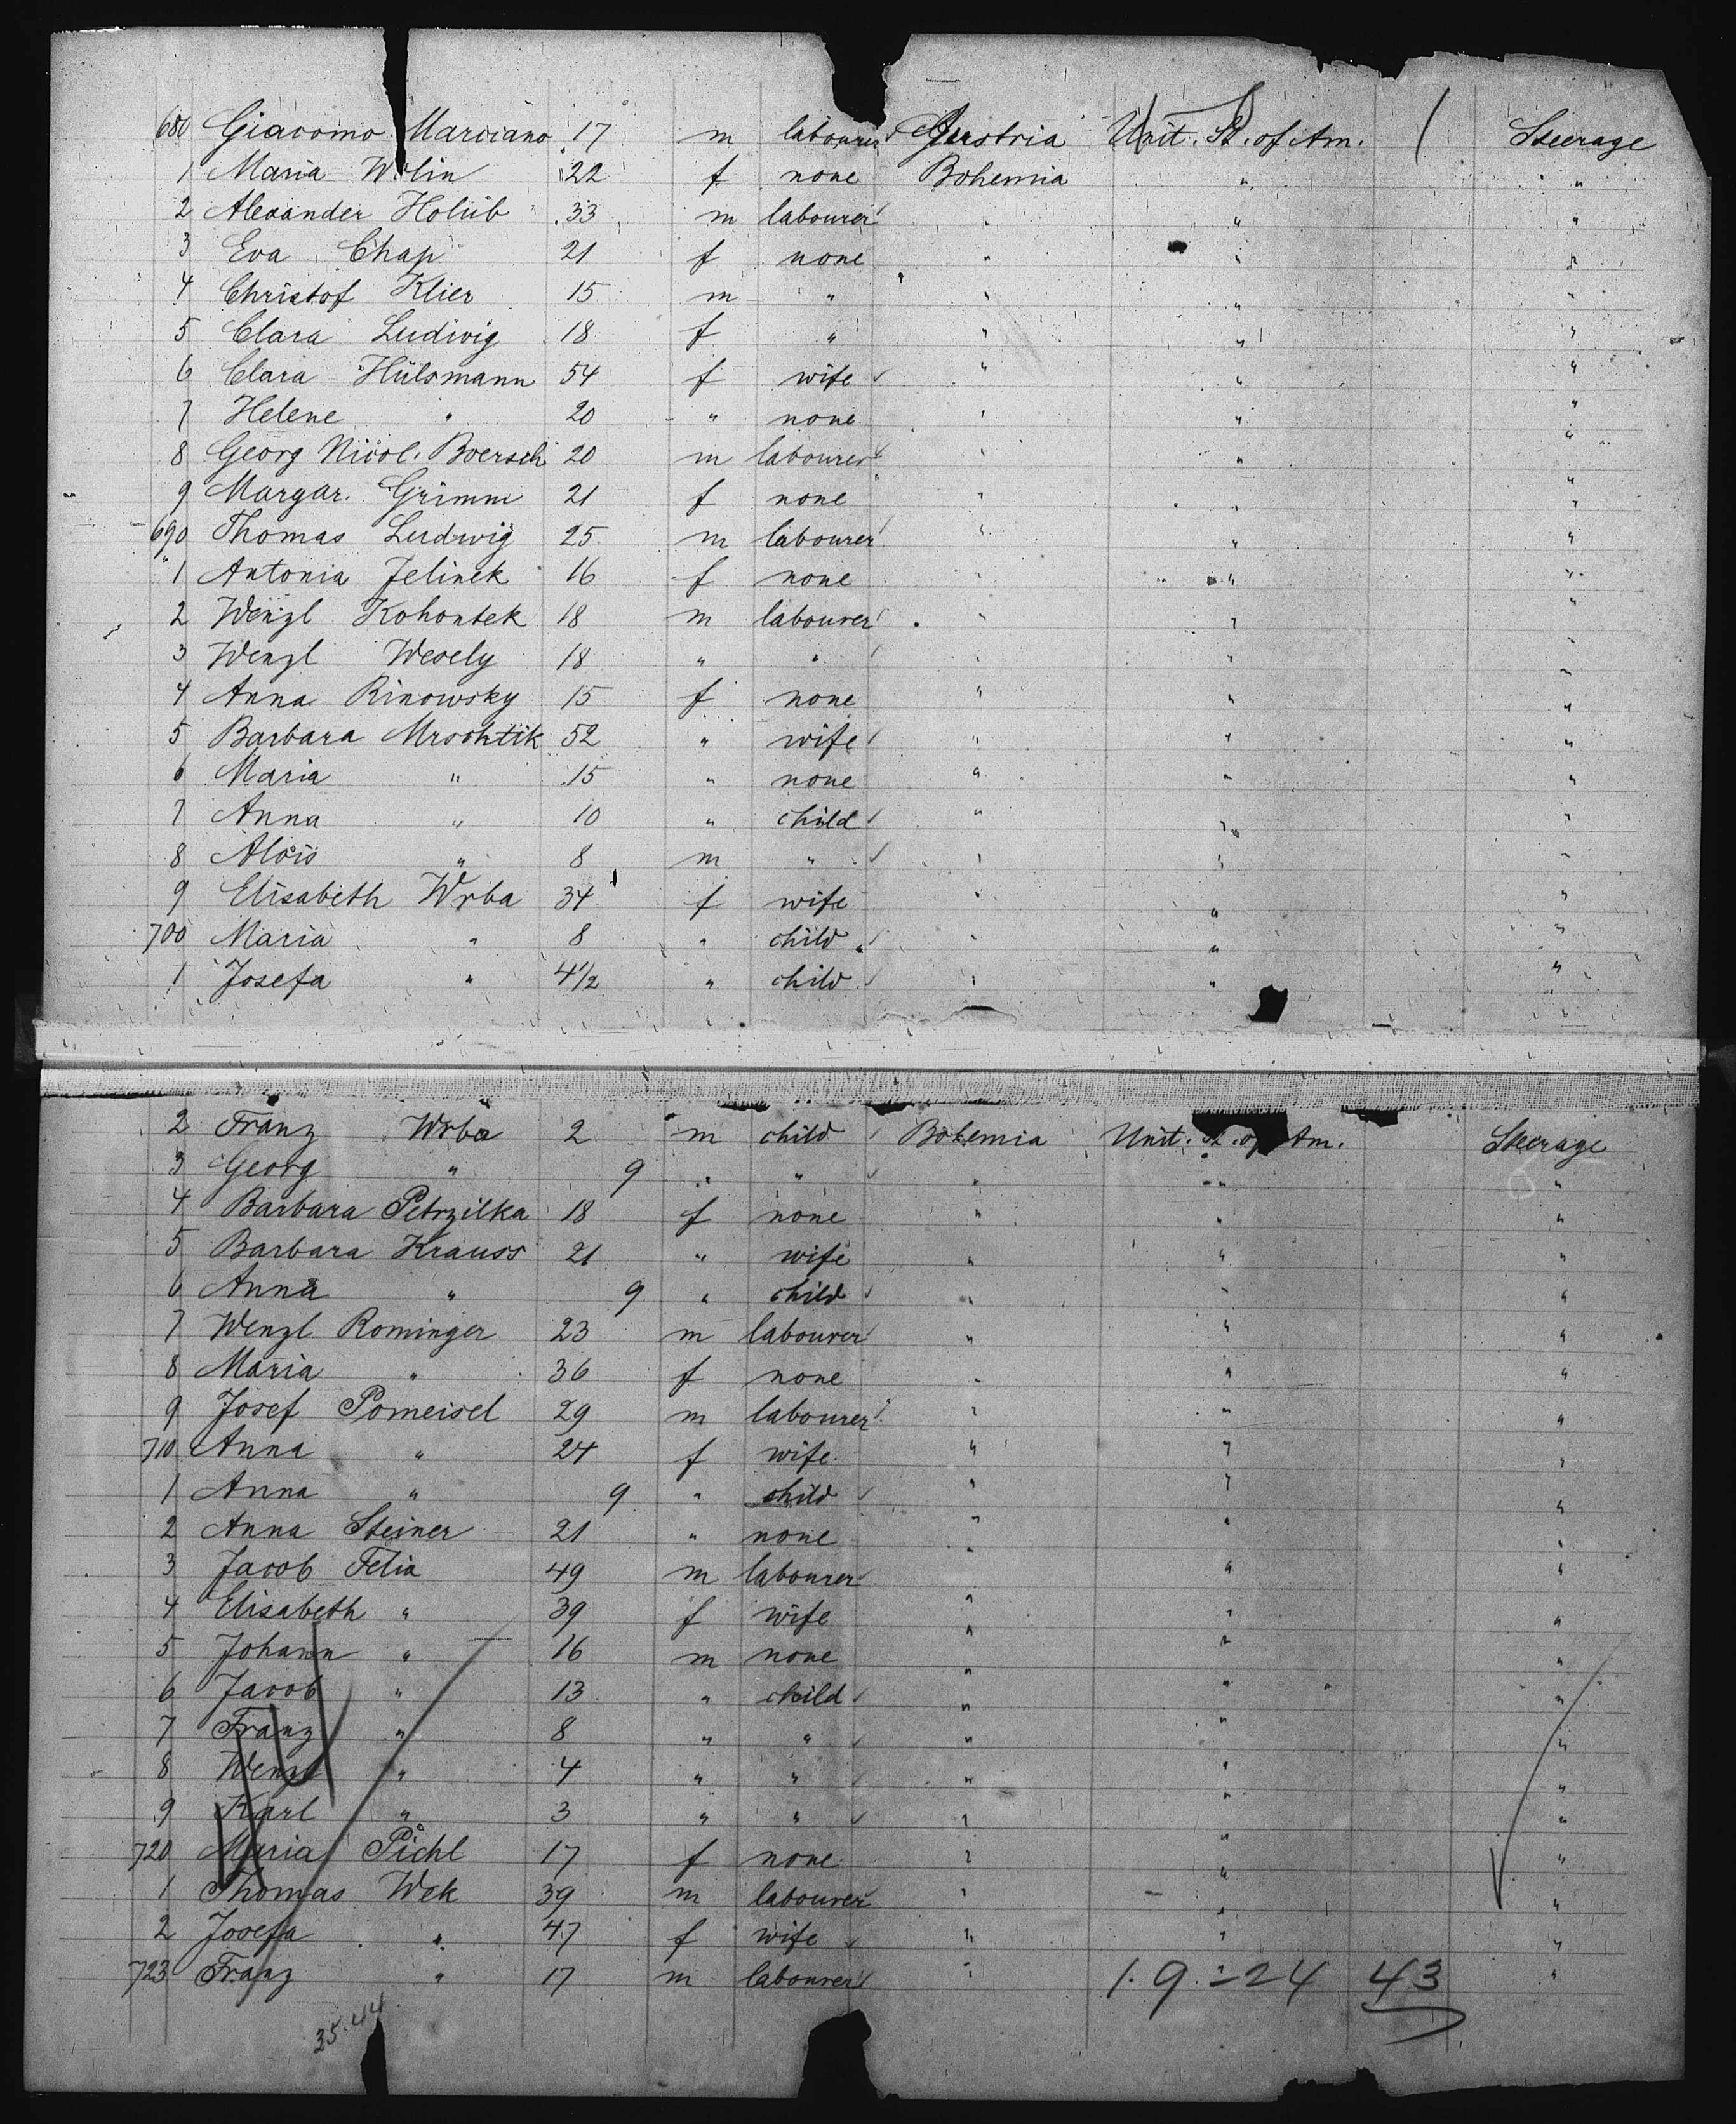 680 Giacomo Marciano 17 m labourer Austria Unit. St. of Am. / Steerage
1 Maria Wolin 22 f none Bohemia " "
2 Alexander Holub 33 m labourer " " "
3 Eva Chap 21 f none " " "
4 Christof Klier 15 m " " " "
5 Clara Ludwig 18 f " " " "
6 Clara Hülsmann 54 f wife " " "
7 Helene " 20 " none " " "
8 Georg Nicol. Boersch 20 m labourer " " "
9 Margar. Grimm 21 f none " " "
690 Thomas Ludwig 25 m labourer " " "
1 Antonia Jelinek 16 f none " " "
2 Wenzl Kohontek 18 m labourer " " "
3 Wenzl Wesely 18 " " " " "
4 Anna Rinowsky 15 f none " " "
5 Barbara Mrschtik 52 " wife " " "
6 Maria " 15 " none " " "
7 Anna " 10 " child " " "
8 Alois " 8 m " " " "
9 Elisabeth Wrba 34 f wife " " "
700 Maria " 8 " child " " "
1 Josefa " 4 1/2 " child " " "
2 Franz Wrba 2 m child Bohemia Unit. St. of Am. Steerage
3 Georg " 9 " " " " "
4 Barbara Petrzilka 18 f none " " "
5 Barbara Krauss 21 " wife " " "
6 Anna " 9 " child " " "
7 Wenzl Rominger 23 m labourer " " "
8 Maria " 36 f none " " "
9 Josef Pomeisel 29 m labourer " " "
710 Anna " 24 f wife " " "
1 Anna " 9 " child " " "
2 Anna Steiner 21 " none " " "
3 Jacob Felix 49 m labourer " " "
4 Elisabeth " 39 f wife " " "
5 Johann " 16 m none " " "
6 Jacob " 13 " child " " "
7 Franz " 8 " " " " "
8 Wenzl " 4 " " " " "
9 Karl " 3 " " " " "
720 Maria Pichl 17 f none " " "
1 Thomas Wek 39 m labourer " " "
2 Josefa " 47 f wife " " "
723 Franz " 17 m labourer " 1.9-24 43 "
35.44